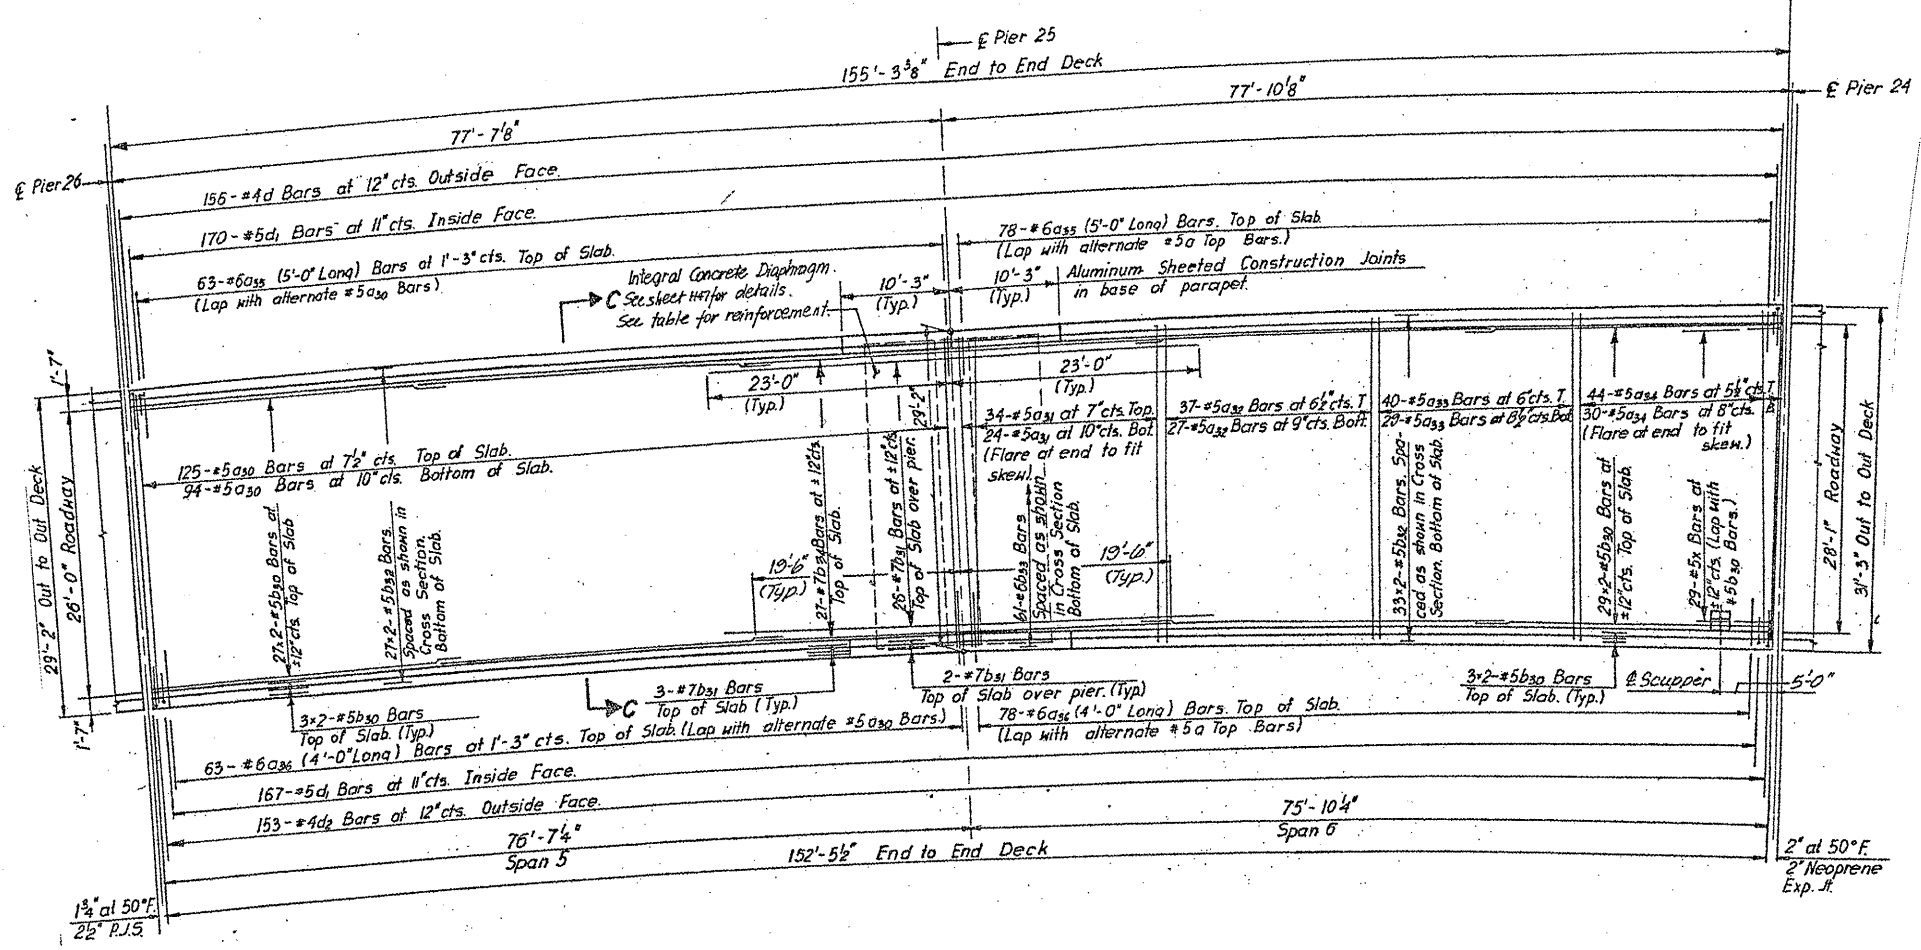 ℄ Pier 25
155'-3⅜" End to End Deck
77'-10⅛"
℄ Pier 24
77'-7⅛"
℄ Pier 26
156-#4d Bars at 12" cts. Outside Face.
170-#5d₁ Bars at 11" cts. Inside Face.
63-#6a₃₅ (5'-0" Long) Bars at 1'-3" cts. Top of Slab.
(Lap with alternate #5a₃₀ Bars)
78-#6a₃₅ (5'-0" Long) Bars. Top of Slab.
(Lap with alternate #5a Top Bars.)
Integral Concrete Diaphragm.
See sheet for details.
See table for reinforcement.
C
10'-3"
(Typ.)
10'-3"
(Typ.)
Aluminum Sheeted Construction Joints
in base of parapet.
1'-7"
23'-0"
(Typ.)
23'-0"
(Typ.)
29'-2"
34-#5a₃₁ at 7" cts. Top.
24-#5a₃₁ at 10" cts. Bot.
(Flare at end to fit
skew.)
37-#5a₃₂ Bars at 6½" cts. T
27-#5a₃₂ Bars at 9" cts. Bott.
40-#5a₃₃ Bars at 6" cts. T.
29-#5a₃₃ Bars at 8½" cts. Bot
44-#5a₃₄ Bars at 5½" cts. T.
30-#5a₃₄ Bars at 8" cts. B
(Flare at end to fit
skew.)
125-#5a₃₀ Bars at 7½" cts. Top of Slab.
94-#5a₃₀ Bars at 10" cts. Bottom of Slab.
29'-2" Out to Out Deck
26'-0" Roadway
27×2-#5b₃₀ Bars at
±12" cts. Top of Slab
27×2-#5b₃₂ Bars.
Spaced as shown in
Cross Section.
Bottom of Slab.
27-#7b₃₁ Bars at ±12" cts
Top of Slab.
26-#7b₃₁ Bars at ±12" cts
Top of Slab over pier.
61-#6b₃₃ Bars
Spaced as shown
in Cross Section
Bottom of Slab.
33×2-#5b₃₂ Bars. Spa-
ced as shown in Cross
Section. Bottom of Slab.
29×2-#5b₃₀ Bars at
±12" cts. Top of Slab.
29-#5x Bars at
±12" cts. (Lap with
#5b₃₀ Bars.)
28'-1" Roadway
31'-3" Out to Out Deck
19'-6"
(Typ.)
19'-6"
(Typ.)
1'-7"
3×2-#5b₃₀ Bars
Top of Slab. (Typ.)
C
3-#7b₃₁ Bars
Top of Slab (Typ.)
2-#7b₃₁ Bars
Top of Slab over pier. (Typ)
3×2-#5b₃₀ Bars
Top of Slab. (Typ.)
℄ Scupper
5'-0"
63-#6a₃₆ (4'-0" Long) Bars at 1'-3" cts. Top of Slab. (Lap with alternate #5a₃₀ Bars.)
78-#6a₃₆ (4'-0" Long) Bars. Top of Slab.
(Lap with alternate #5a Top Bars)
167-#5d₁ Bars at 11" cts. Inside Face.
153-#4d₂ Bars at 12" cts. Outside Face.
76'-7¼"
Span 5
75'-10¼"
Span 6
152'-5½" End to End Deck
1¾" at 50°F.
2½" P.J.S.
2" at 50°F.
2" Neoprene
Exp. Jt.